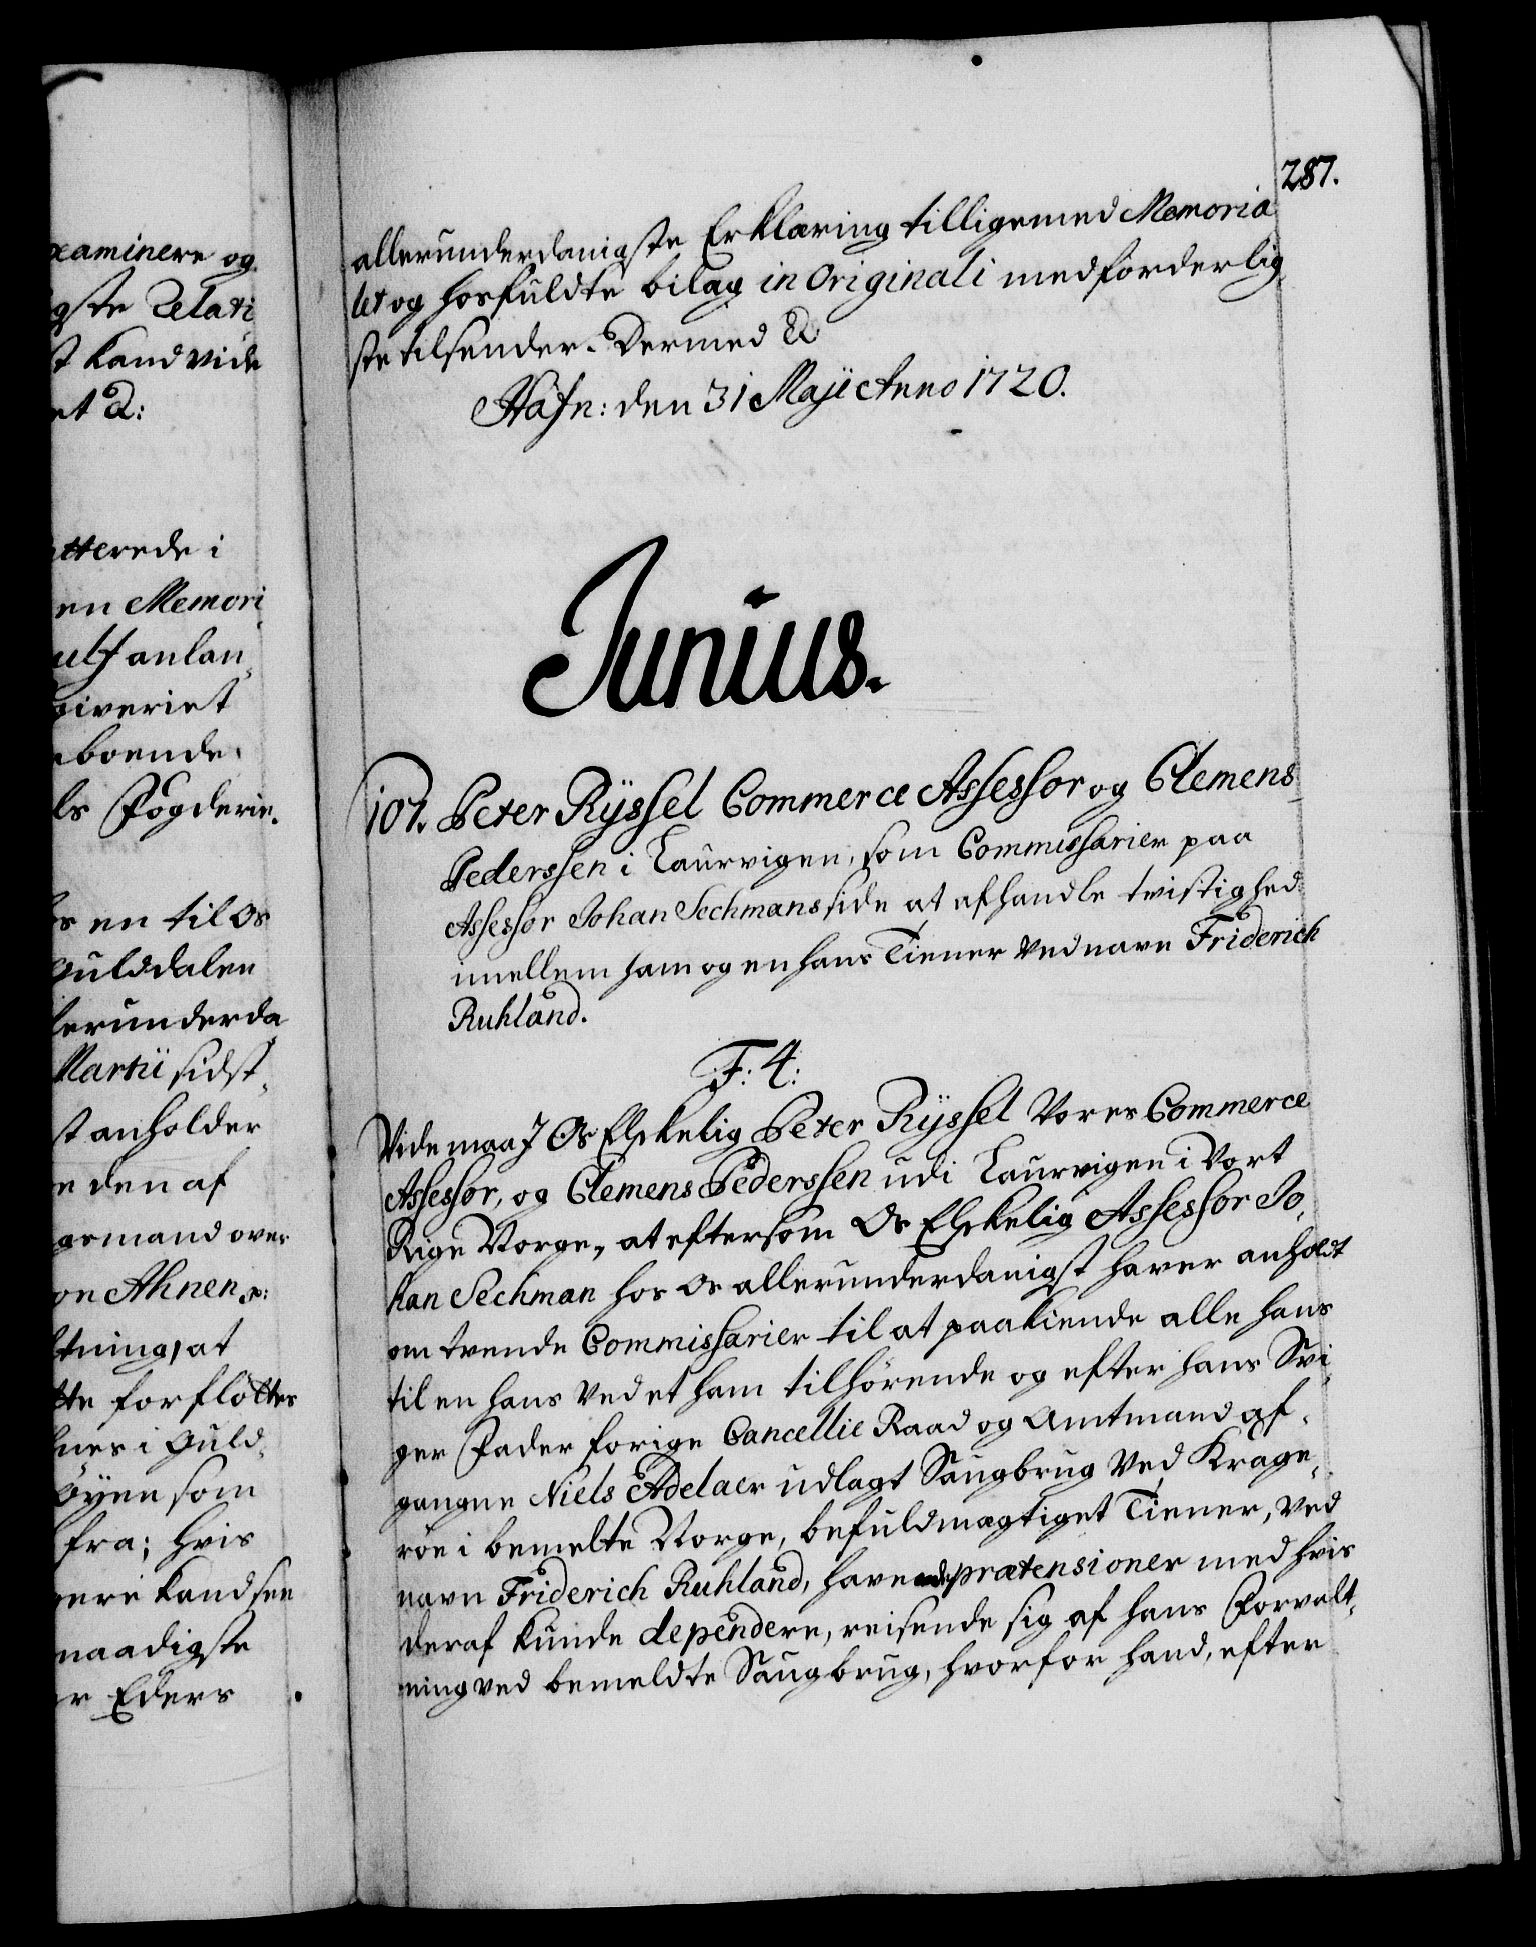 xaminere og
gste Relati
st kand vide
et &:
atterede i
en Memori
ulf anlan-
giveriet
boende
ls Fogderie.
s en til Os
Guldalen
lerunderda
Martii sidst-
st anholder
e den af
germand over
on Ahnen
tning, at
tte forflöttes
nes i Guld-
öyen som
fra; hvis
ere kand see
naadigste
er Eders
287.
allerunderdanigste Erklæring tilligemed Memoria
let og hosfuldte bilag in Originali medforderlig
ste tilsender. Dermed &
Hafn: den 31 Maji Anno 1720.
Junius.
107. Peter Ryssel Commerce Assessor og Clemens
Pederssen i Laurvigen, som Commissarier paa
Assessor Johan Sechmans side at afhandle tvistighed
imellem ham og en hans Tiener ved navn Friderich
Ruhland.
F: 4:
Vide maa I Os Elskelig Peter Ryssel Vores Commerce
Assessor, og Clemens Pederssen udi Laurvigen i Vort
Rige Norge, at eftersom Os Elskelig Assessor Jo,
han Sechman hos Os allerunderdanigst haver anholdt
om tvende Commissarier til at paakiende alle hans
til en hans ved et ham tilhörende og efter hans Svi,
ger Fader forige Cancellie Raad og Amtmand af-
gangne Niels Adelaer udlagt Saugbrug ved Krage,
röe i bemelte Norge, befuldmægtiget Tiener, ved
navn Friderich Ruhland, havende prætensioner med hvis
deraf kunde dependere, reisende sig af hans Forvalt-
ning ved bemeldte Saugbrug, hvorfor hand, efter